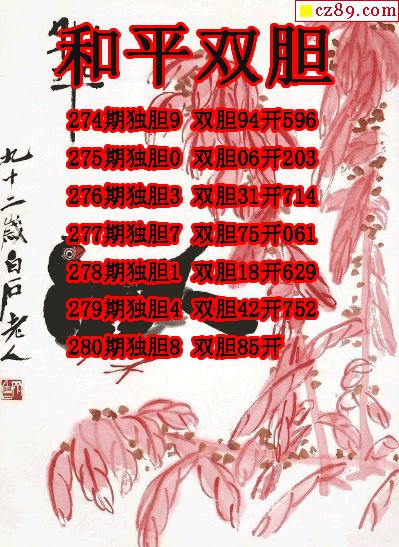 cz89.com
和平双胆
274期独胆9 双胆94开596
275期独胆0 双胆06开203
276期独胆3 双胆31开714
277期独胆7 双胆75开061
278期独胆1 双胆18开629
279期独胆4 双胆42开752
280期独胆8 双胆85开
九十二歲白石老人